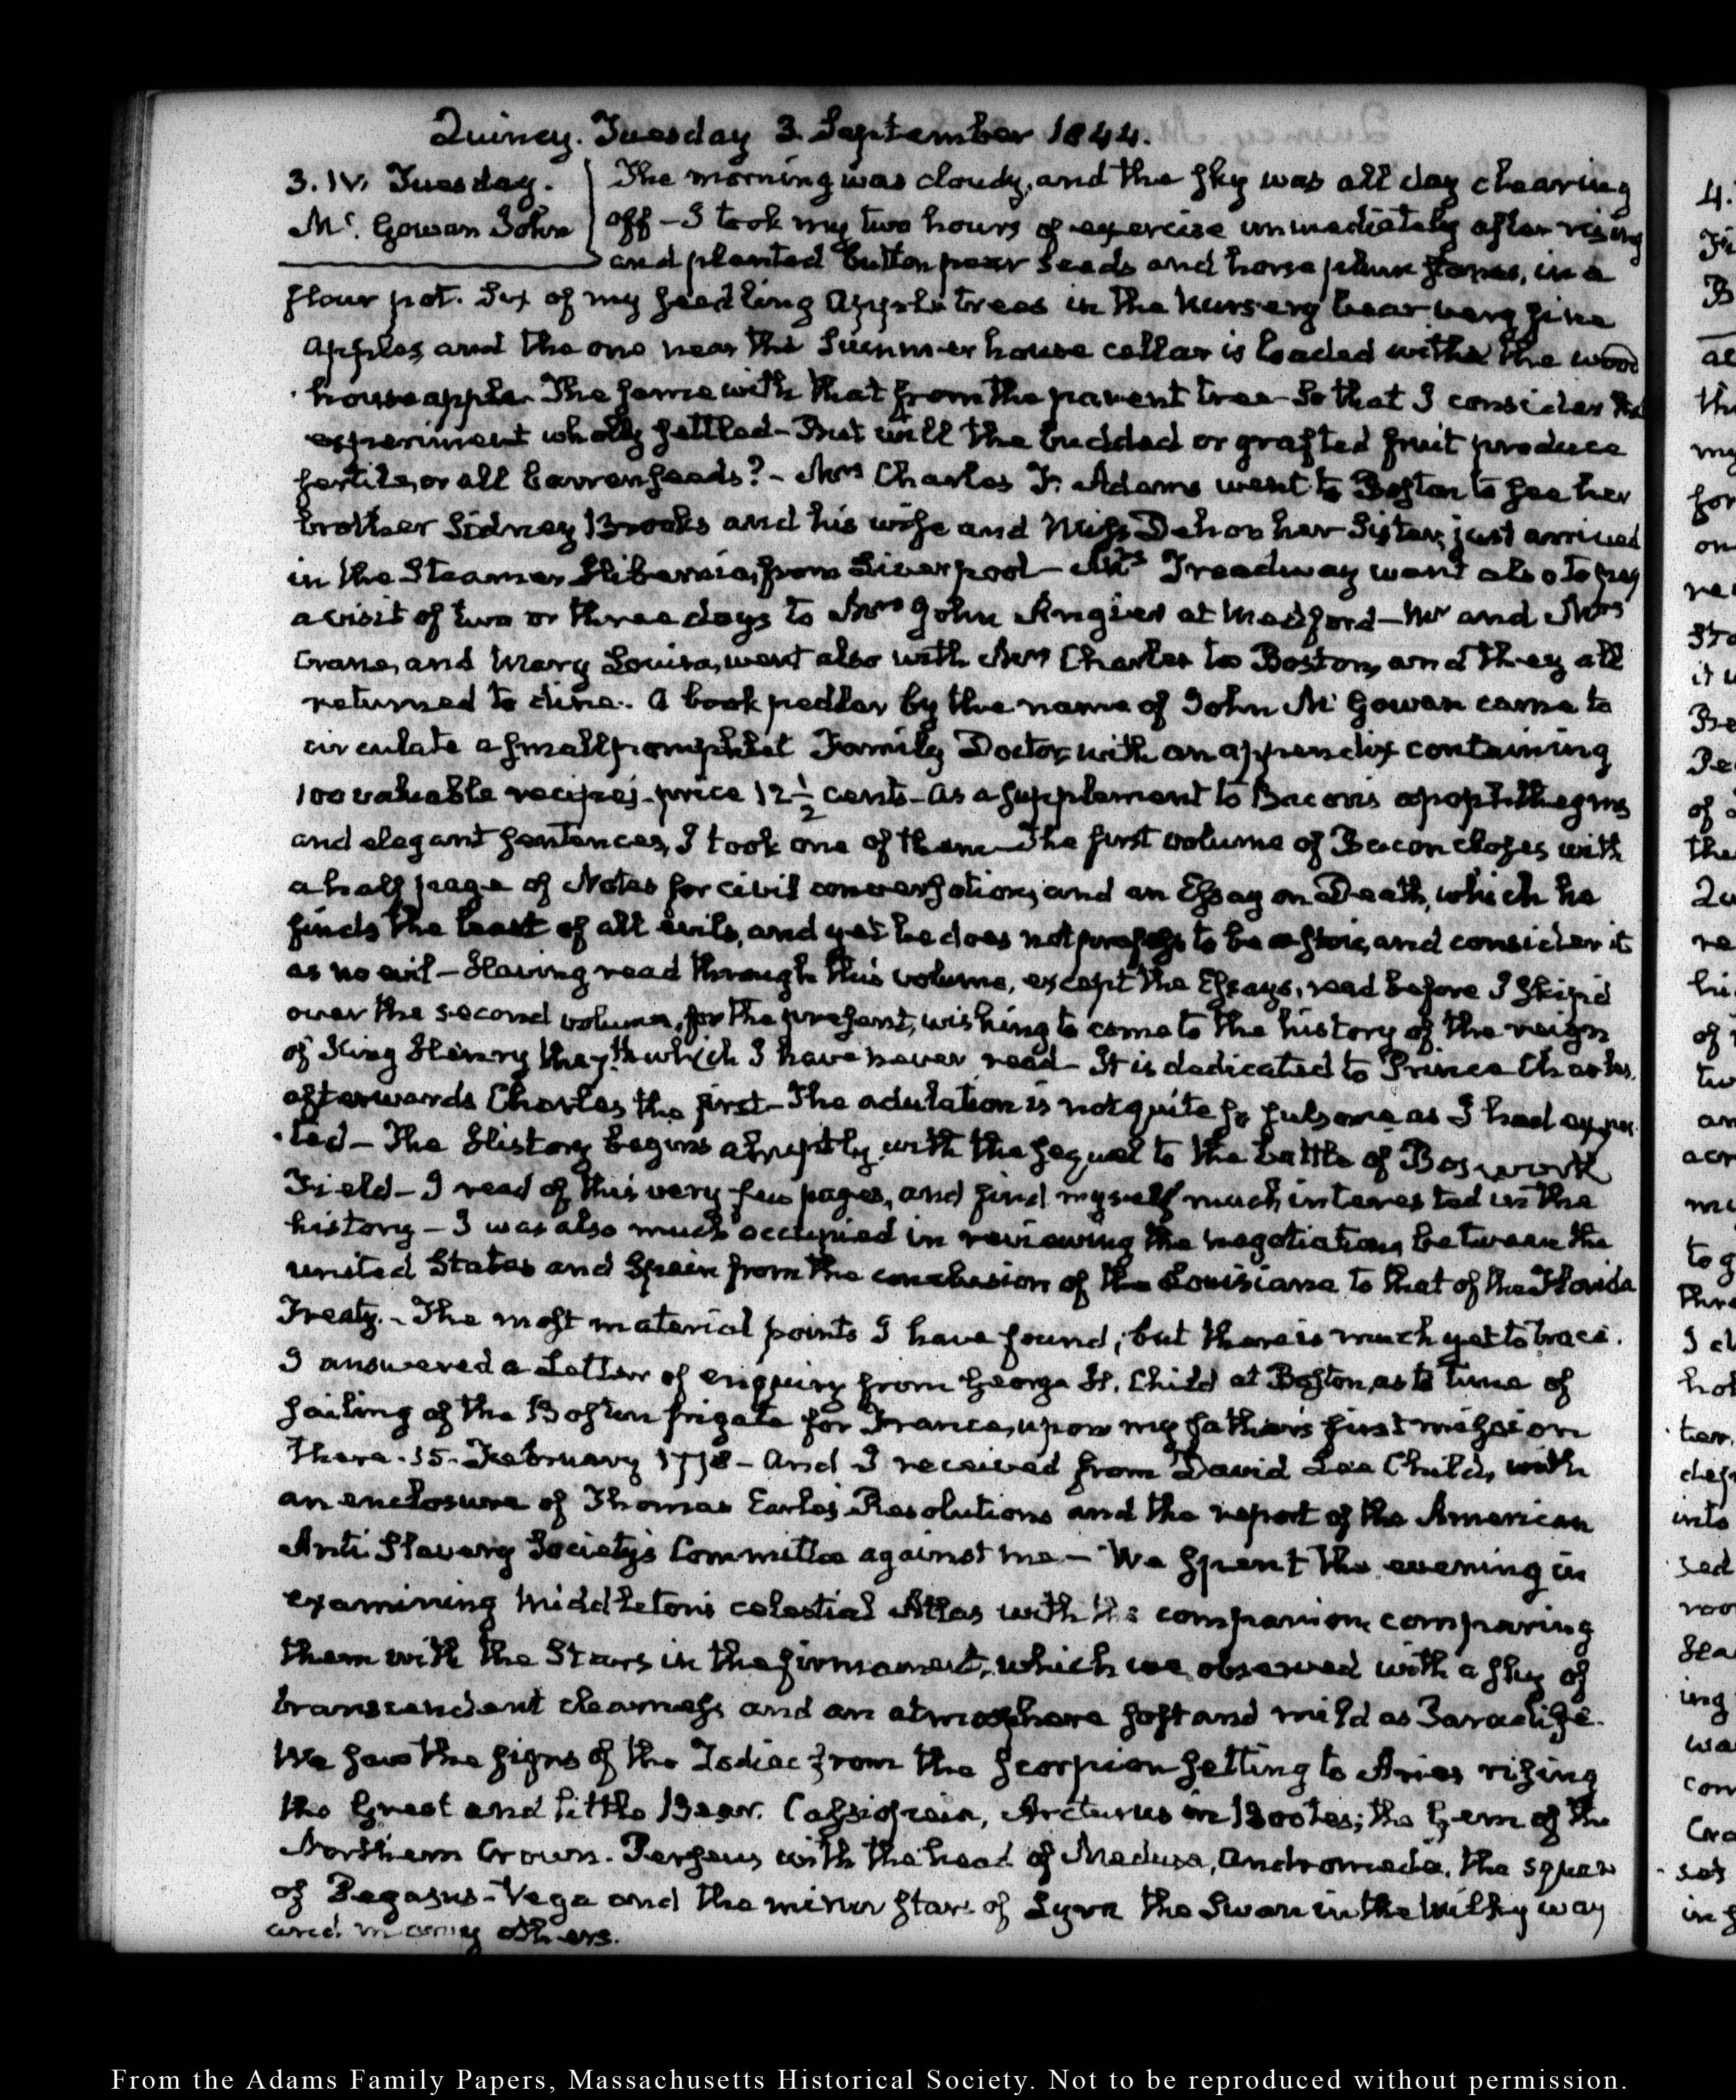 Quincy. Tuesday 3. September 1844.
3. IV. Tuesday.
Mc. Gowan John
The morning was cloudy, and the sky was all day clearing
off – I took my two hours of exercise immediately after rising
and planted button pear seeds and horse plum stones, in a
flour pot. Six of my seedling apple trees in the nursery bear very fine
apples, and the one near the Summer house cellar is loaded with the wood
house apple. The same with that from the parent tree – So that I consider the
experiment wholly settled – But will the budded or grafted fruit produce
fertile, or all barren seeds? – Mrs Charles F. Adams went to Boston to see her
brother Sidney Brooks and his wife and Miss Dehon her Sister, just arrived
in the Steamer Hibernia, from Liverpool – Mrs Treadway went also to pay
a visit of two or three days to Mrs John Angier at Medford – Mr and Mrs
Crane, and Mary Louisa, went also with Mrs Charles to Boston, and they all
returned to dine. A book pedlar by the name of John Mc Gowan came to
circulate a small pamphlet Family Doctor, with an appendix containing
100 valuable recipes – price 12 1/2 cents – As a supplement to Bacon's apophthegms
and elegant sentences, I took one of them – The first volume of Bacon closes with
a half page of Notes for civil conversation, and an Essay on Death, which he
finds the least of all evils, and yet he does not profess to be a stoic, and consider it
as no evil – Having read through this volume, except the Essays, read before I skip'd
over the second volume, for the present, wishing to come to the history of the reign
of King Henry the 7th which I have never read – It is dedicated to Prince Charles,
afterwards Charles the first – The adulation is not quite so fulsome as I had expec
ted – The History begins abruptly with the sequel to the battle of Bosworth
Field – I read of this very few pages, and find myself much interested in the
history – I was also much occupied in reviewing the negotiations between the
united States and Spain from the conclusion of the Louisiana to that of the Florida
Treaty. – The most material points I have found; but there is much yet to trace.
I answered a Letter of enquiry from George H. Child at Boston, as to time of
sailing of the Boston frigate for France, upon my father's first mission
there. 15. February 1778 – And I received from David Lee Child, with
an enclosure of Thomas Earle's Resolutions and the report of the American
Anti Slavery Society's Committee against me – We spent the evening in
examining Middleton's celestial Atlas with the companion, comparing
them with the Stars in the firmament, which we observed with a sky of
transcendent clearness and an atmosphere soft and mild as Paradise.
We saw the signs of the Zodiac from the Scorpion setting to Aries rising
the Great and little Bear. Cassiopeia, Arcturus in Bootes; the Gem of the
Northern Crown. Perseus with the head of Medusa, Andromeda, the square
of Pegasus – Vega and the minor stars of Lyra the Swan in the Milky way
and many others.
From the Adams Family Papers, Massachusetts Historical Society. Not to be reproduced without permission.